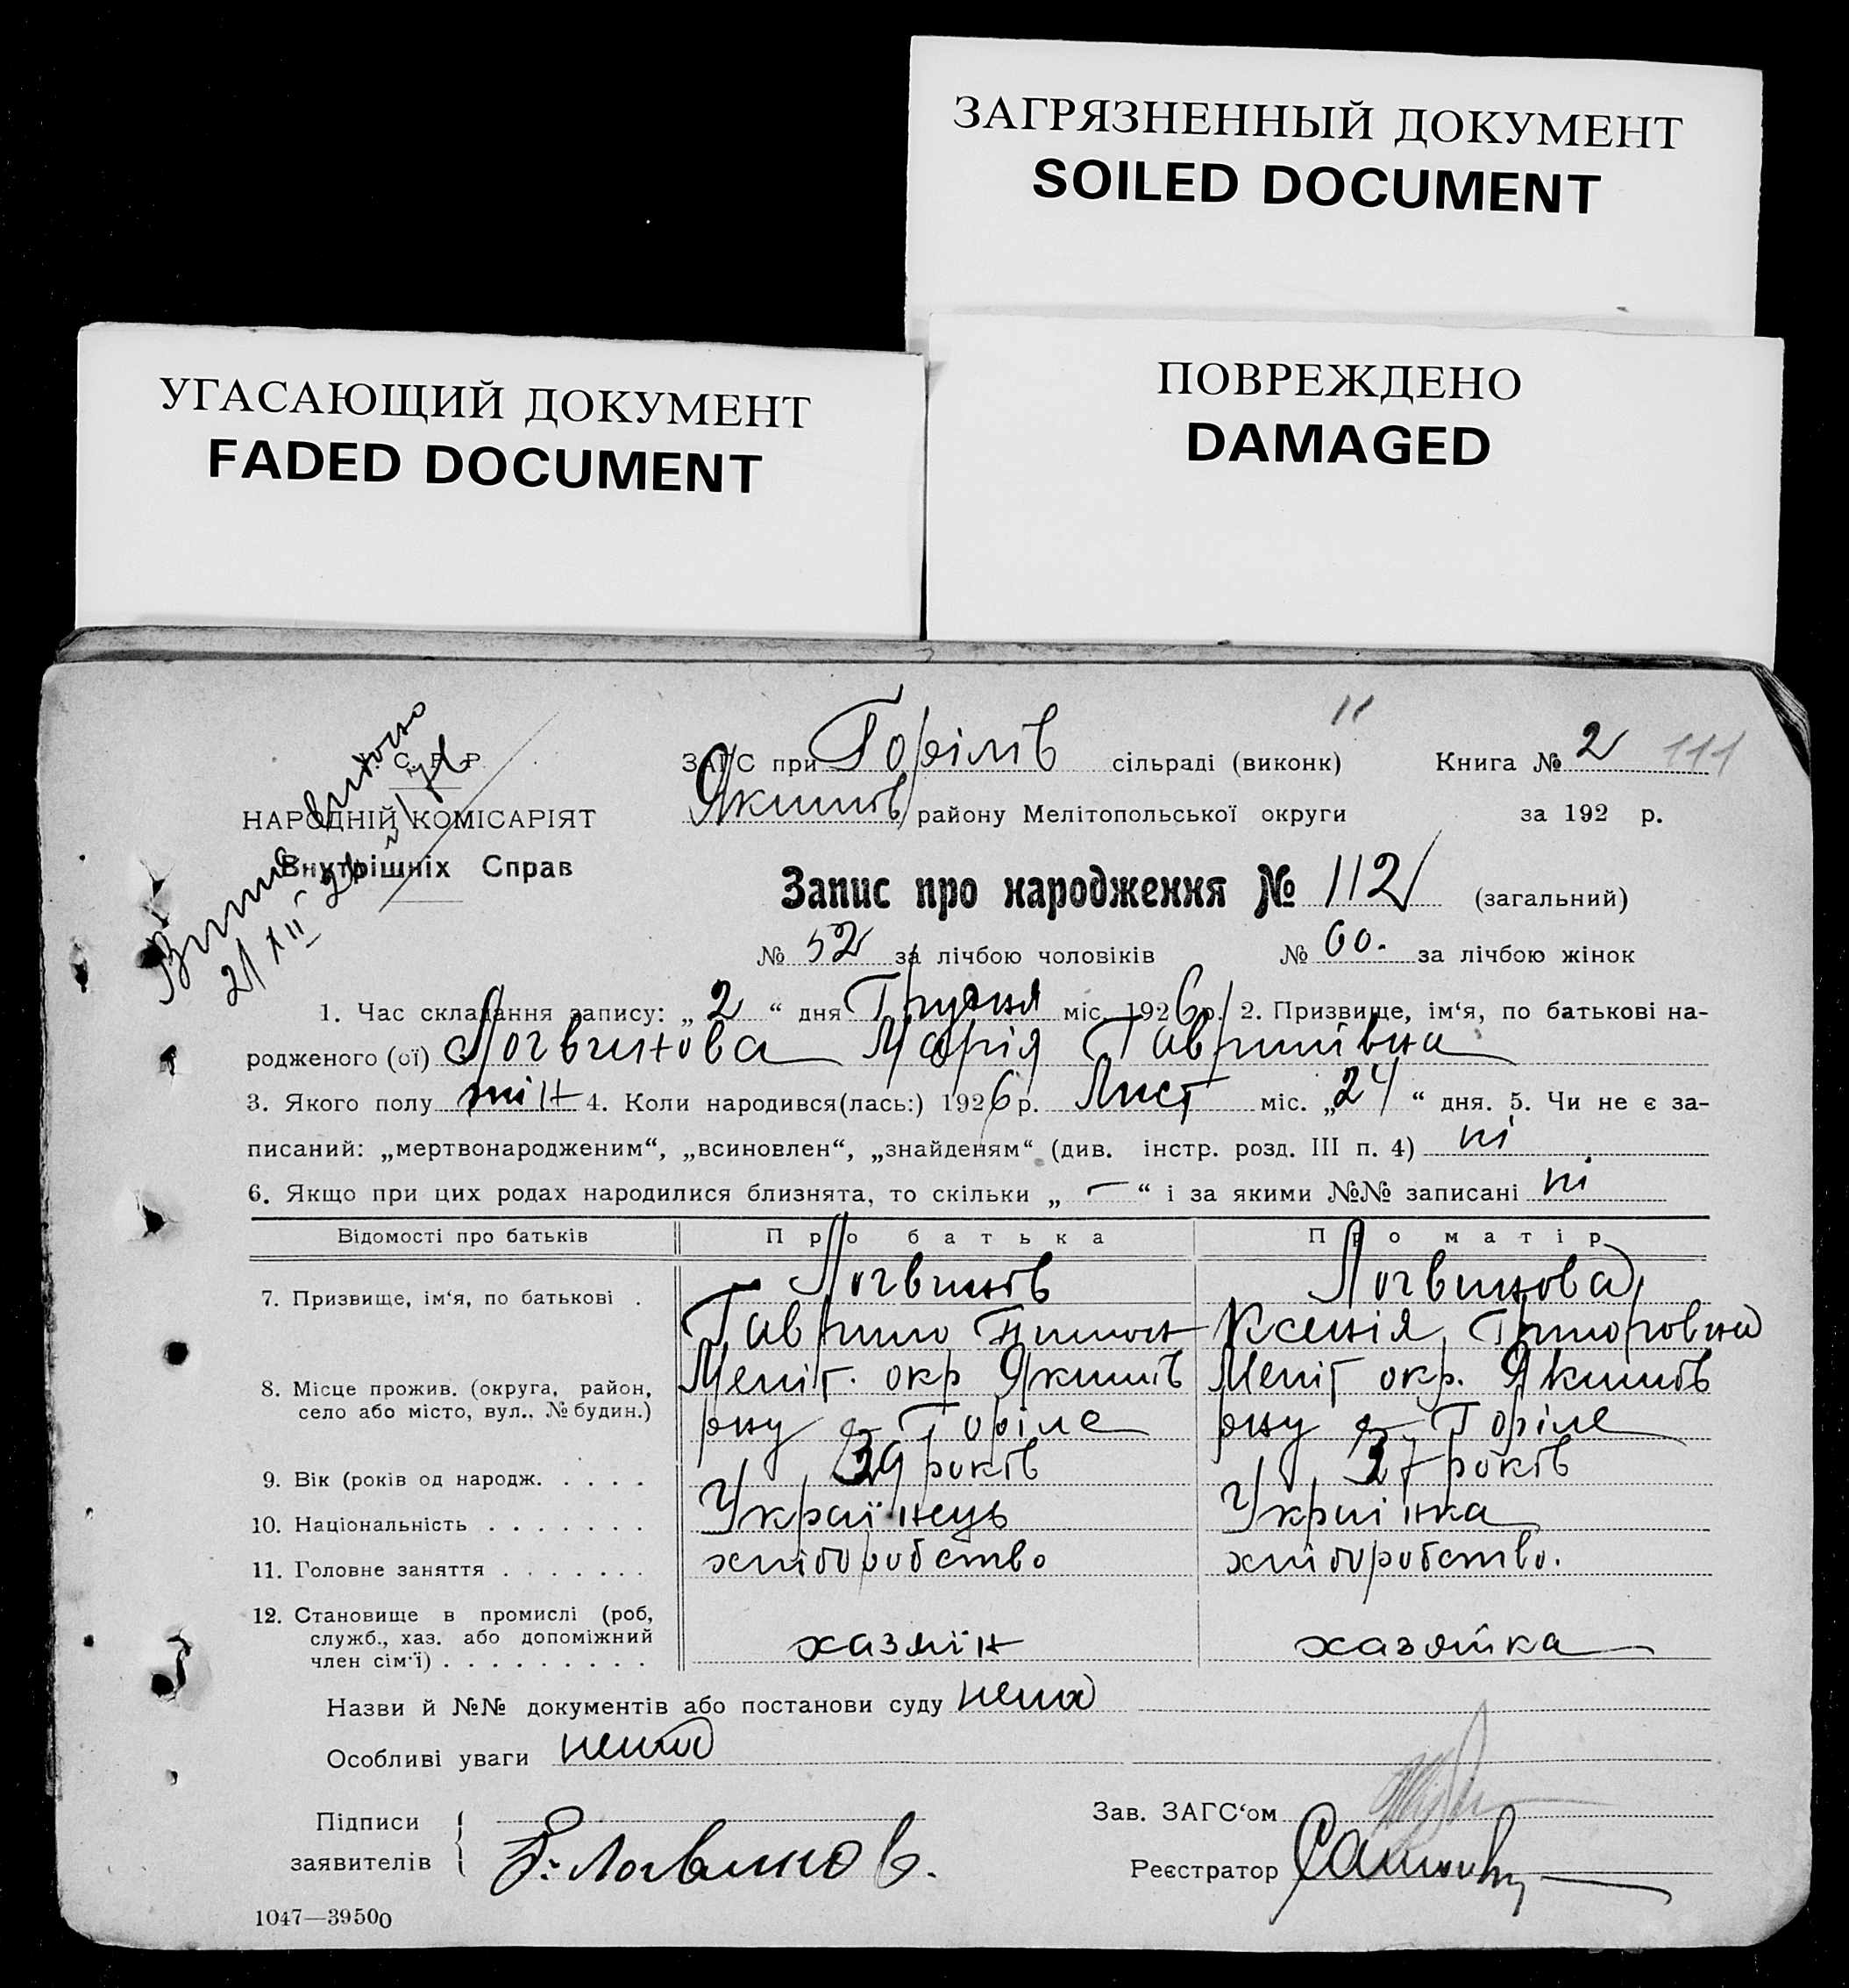 ЗАГРЯЗНЕННЫЙ ДОКУМЕНТ
SOILED DOCUMENT
УГАСАЮЩИЙ ДОКУМЕНТ
FADED DOCUMENT
ПОВРЕЖДЕНО
DAMAGED
ЗАГС при Горілів сільраді (виконк) Книга № 2 111
С. Р. Р.
НАРОДНІЙ КОМІСАРІЯТ
Внутрішніх Справ
21 XII 26
Якимів району Мелітопольської округи за 192 р.
Запис про народження № 112 (загальний)
№ 52 за лічбою чоловіків № 60. за лічбою жінок
1. Час складання запису: „ 2 “ дня Грудня міс. 1926 р. 2. Призвище, ім‘я, по батькові на-
родженого (ої) Логвинова Марія Гаврилівна
3. Якого полу жін 4. Коли народився(лась:) 1926 р. Лист міс. „ 24 “ дня. 5. Чи не є за-
писаний: „мертвонародженим“, „всиновлен“, „знайденям“ (див. інстр. розд. III п. 4) ні
6. Якщо при цих родах народилися близнята, то скільки „ — “ і за якими №№ записані ні
Відомості про батьків Про батька Про матір
7. Призвище, ім‘я, по батькові . Логвинів Логвинова
Гаврило Ксенія Григоровна
8. Місце прожив. (округа, район, Меліт. окр Якимів Меліт окр. Якимів
село або місто, вул., № будин.) рну с. Горіле рну с. Горіле
9. Вік (років од народж. . . . . 39 років 37 років
10. Національність . . . . . . . Українець Українка
11. Головне заняття . . . . . . . хліборобство хліборобство.
12. Становище в промислі (роб,
служб., хаз. або допоміжний хазяїн хазяйка
член сім‘ї) . . . . . . . . .
Назви й №№ документів або постанови суду нема
Особливі уваги нема
Підписи Зав. ЗАГС‘ом
заявителів Логвинов. Реєстратор
1047—39500